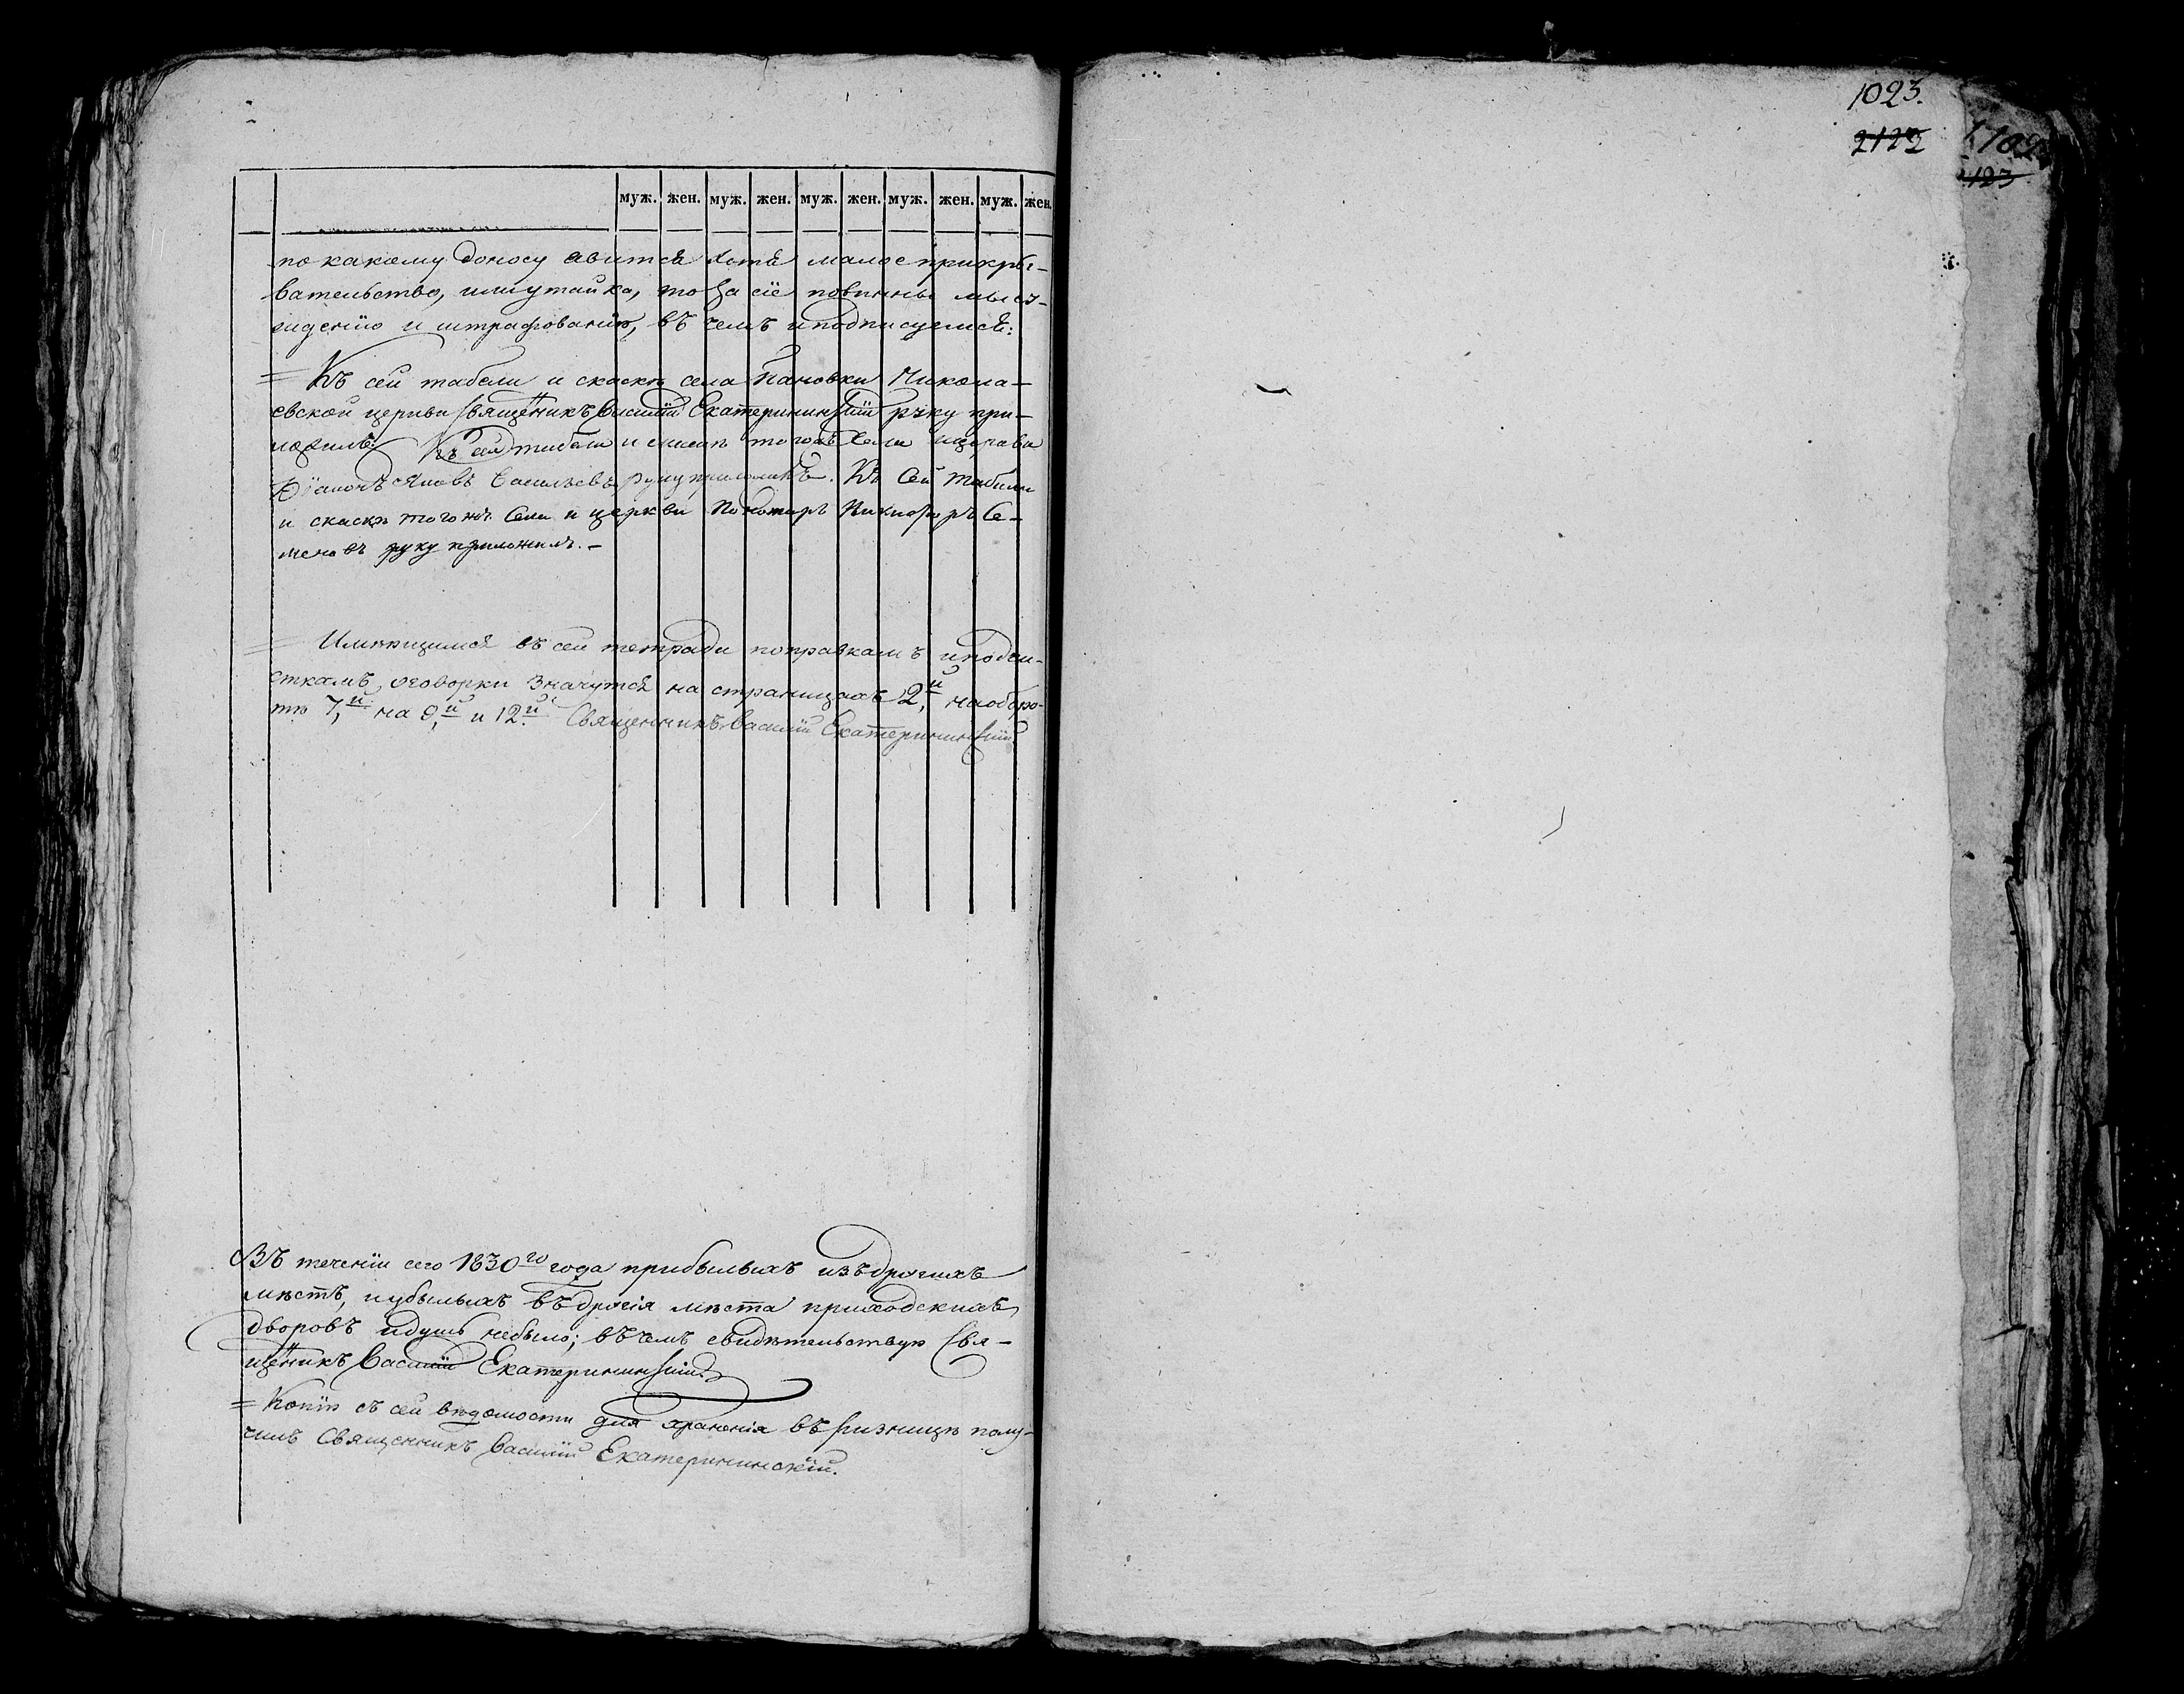 муж. жен. муж. жен. муж. жен. муж. жен. муж. жен.
по какому доносу явится хотя малое прикры-
вательство, или утайка, то за сіе повинны мы су-
жденію и штрафованію, въ чемъ и подписуемся:
= Къ сей табели и сказкѣ села Пановки Никола-
евской церкви священникъ Василій Екатерининскій руку при-
ложилъ. Къ сей табели и сказкѣ тогожъ села церкви
Діаконъ Яковъ Васильевъ руку приложилъ. Къ сей табели
и сказкѣ тогожъ села и церкви Пономарь Никифоръ Се-
меновъ руку приложилъ.-
= Имѣющимся въ сей тетради поправкамъ и подчи-
сткамъ, оговорки значутся на страницахъ 2,й на оборо-
тѣ 7,й на 9,й и 12.й Священникъ Василій Екатерининскій
Въ теченіи сего 1830го года прибылыхъ изъ другихъ
мѣстъ, и убылыхъ въ другія мѣста приходскихъ
дворовъ и душъ небыло; въ чемъ свидѣтельствую Свя-
щенникъ Василій Екатерининскій.
= Копію съ сей вѣдомости для храненія въ ризницѣ полу-
чилъ Священникъ Василій Екатерининскій.
1023.
2122